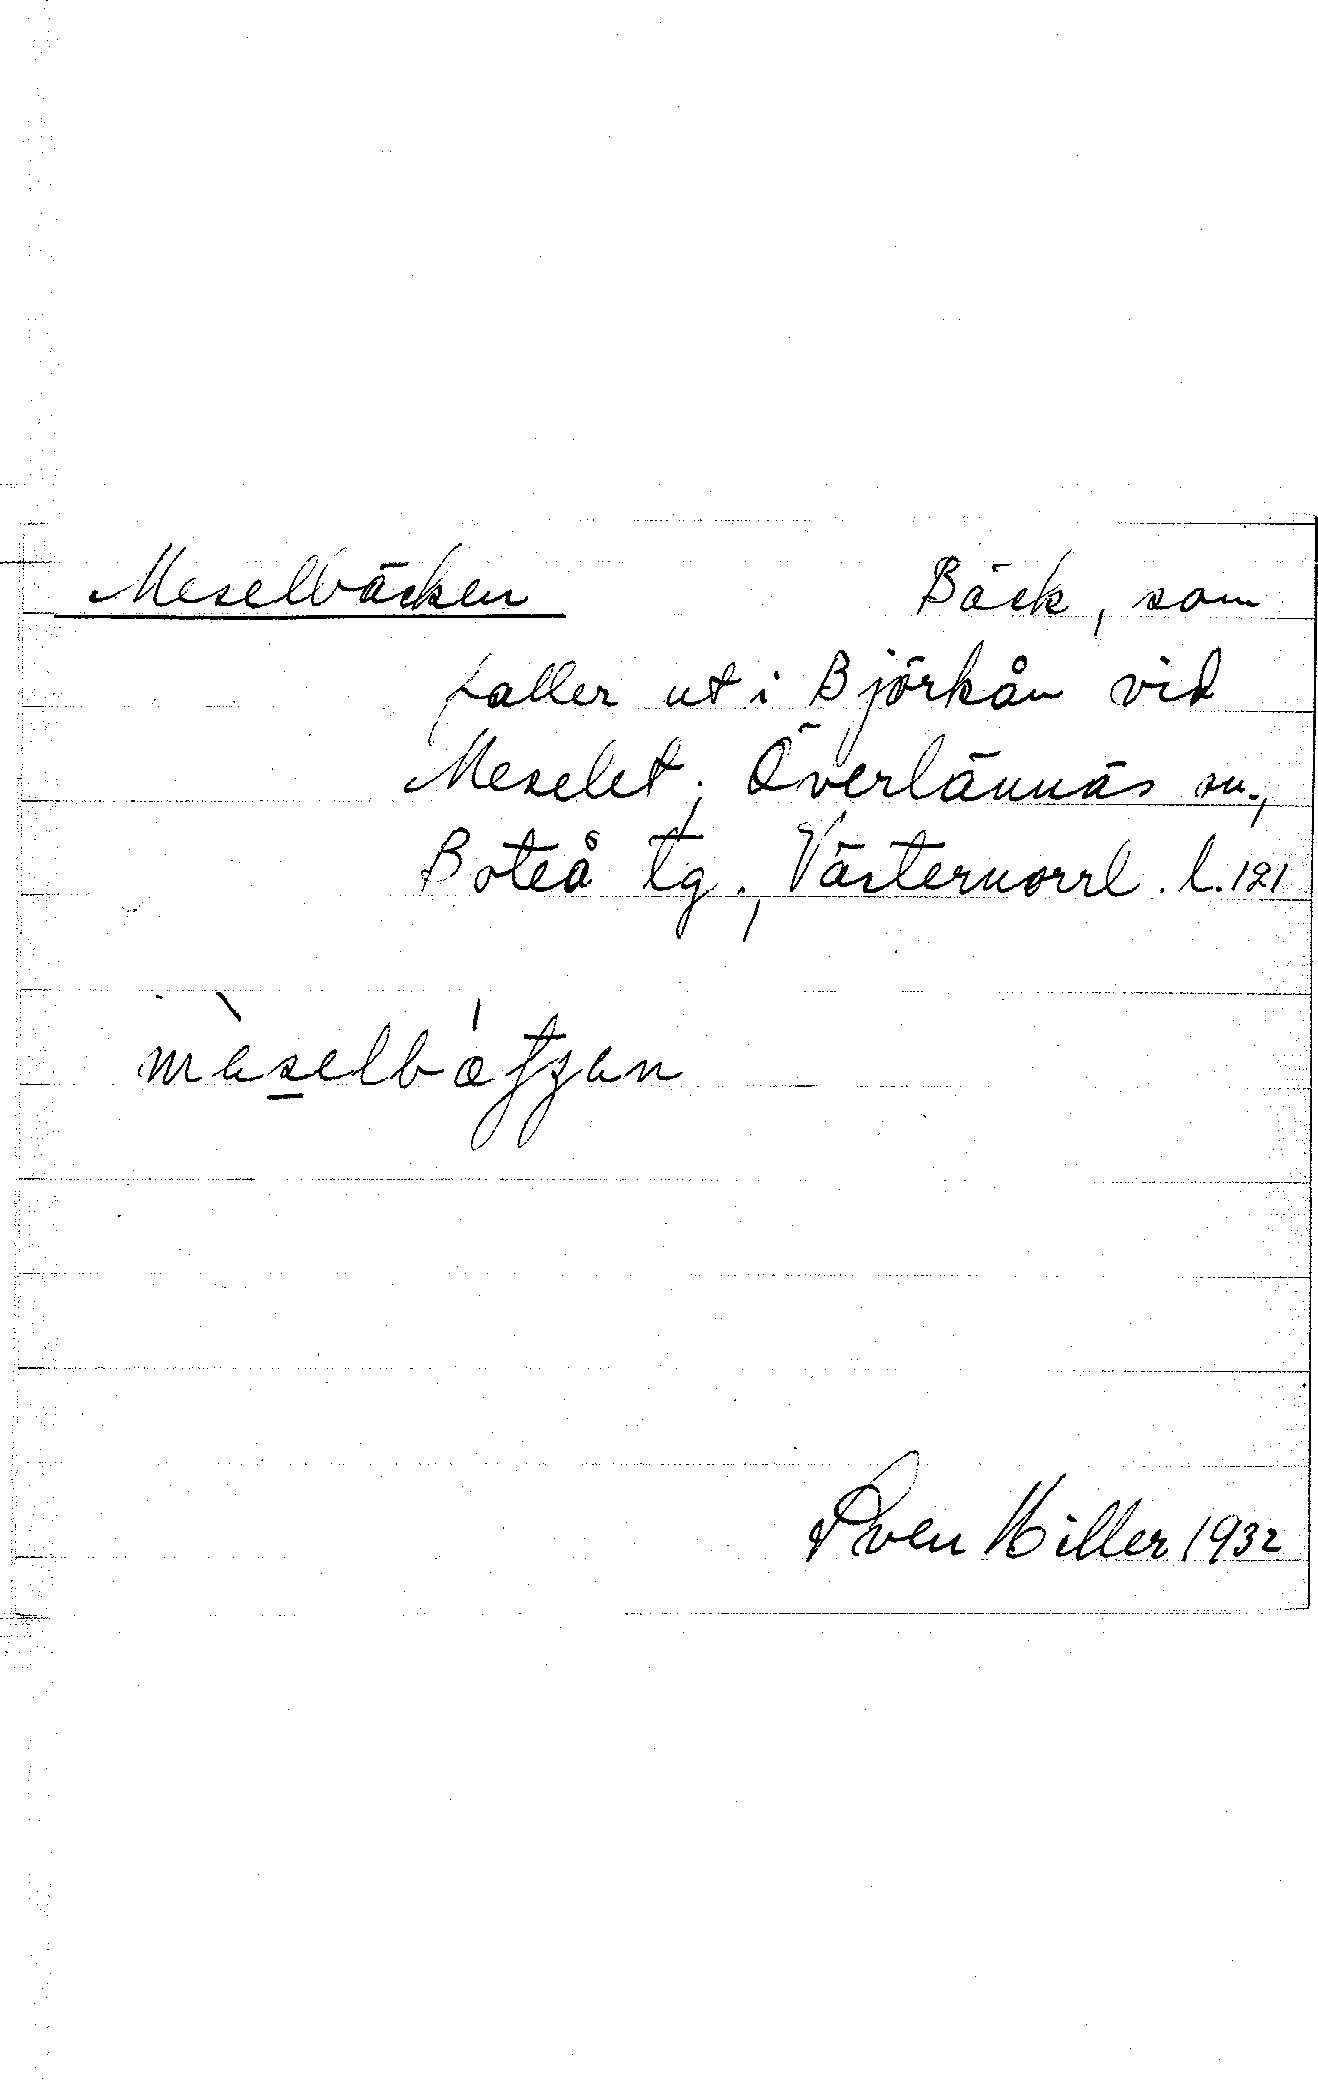 Meselbäcken Bäck, som
faller ut i Björkån vid
Meselet; Överlännäs sn.,
Boteå tg., Västernorrl. l. 121
Sven Hiller 1932